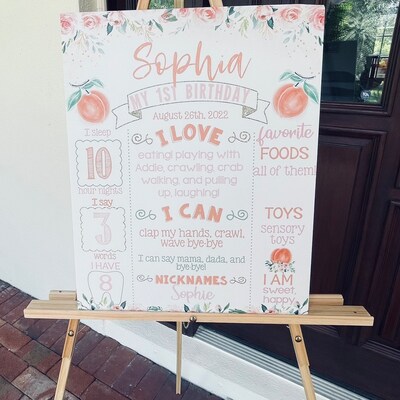 Sophia
MY 1ST BIRTHDAY
August 26th, 2022
I sleep
10
hour nights
I say
3
words
I HAVE
8
I LOVE
eating! playing with
Addie, crawling, crab
walking, and pulling
up, laughing!
I CAN
clap my hands, crawl,
wave bye-bye
I can say mama, dada, and
bye-bye!
NICKNAMES
Sophie
favorite
FOODS
all of them!
TOYS
sensory
toys
I AM
sweet,
happy,